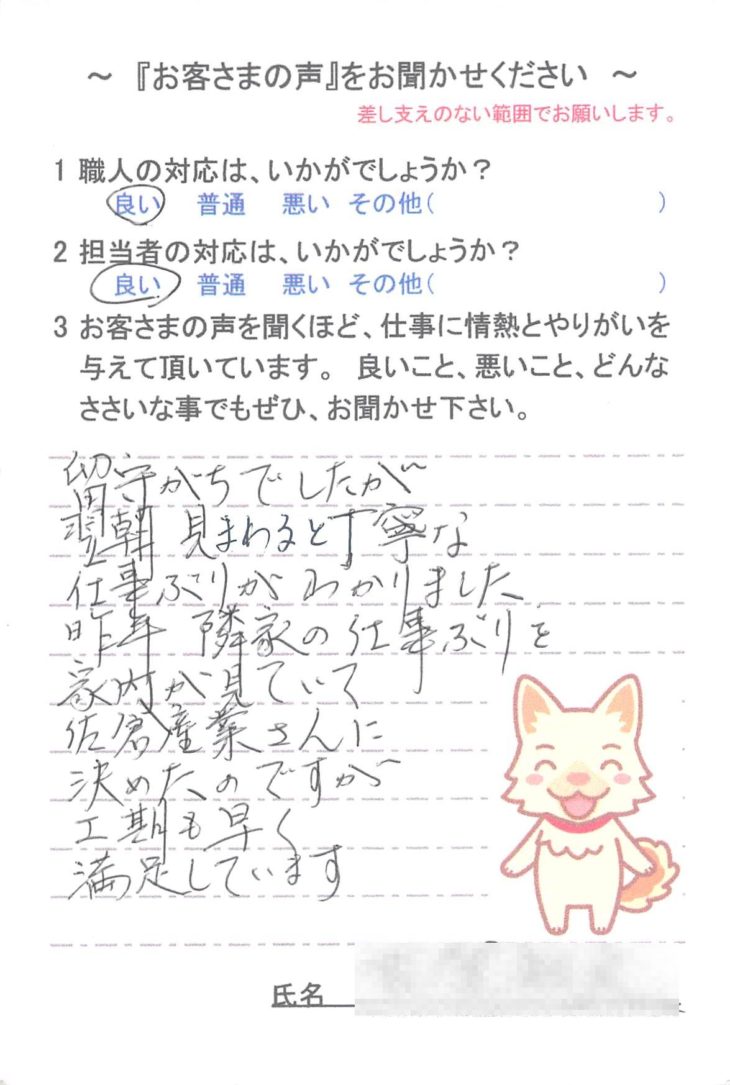 ～ 『お客さまの声』をお聞かせください ～
差し支えのない範囲でお願いします。
1 職人の対応は、いかがでしょうか？
良い 普通 悪い その他( )
2 担当者の対応は、いかがでしょうか？
良い 普通 悪い その他( )
3 お客さまの声を聞くほど、仕事に情熱とやりがいを
与えて頂いています。 良いこと、悪いこと、どんな
ささいな事でもぜひ、お聞かせ下さい。
留守がちでしたが
翌朝 見まわると丁寧な
仕事ぶりがわかりました
昨年 隣家の仕事ぶりを
家内が見ていて
佐倉産業さんに
決めたのですが
工期も早く
満足しています
氏名